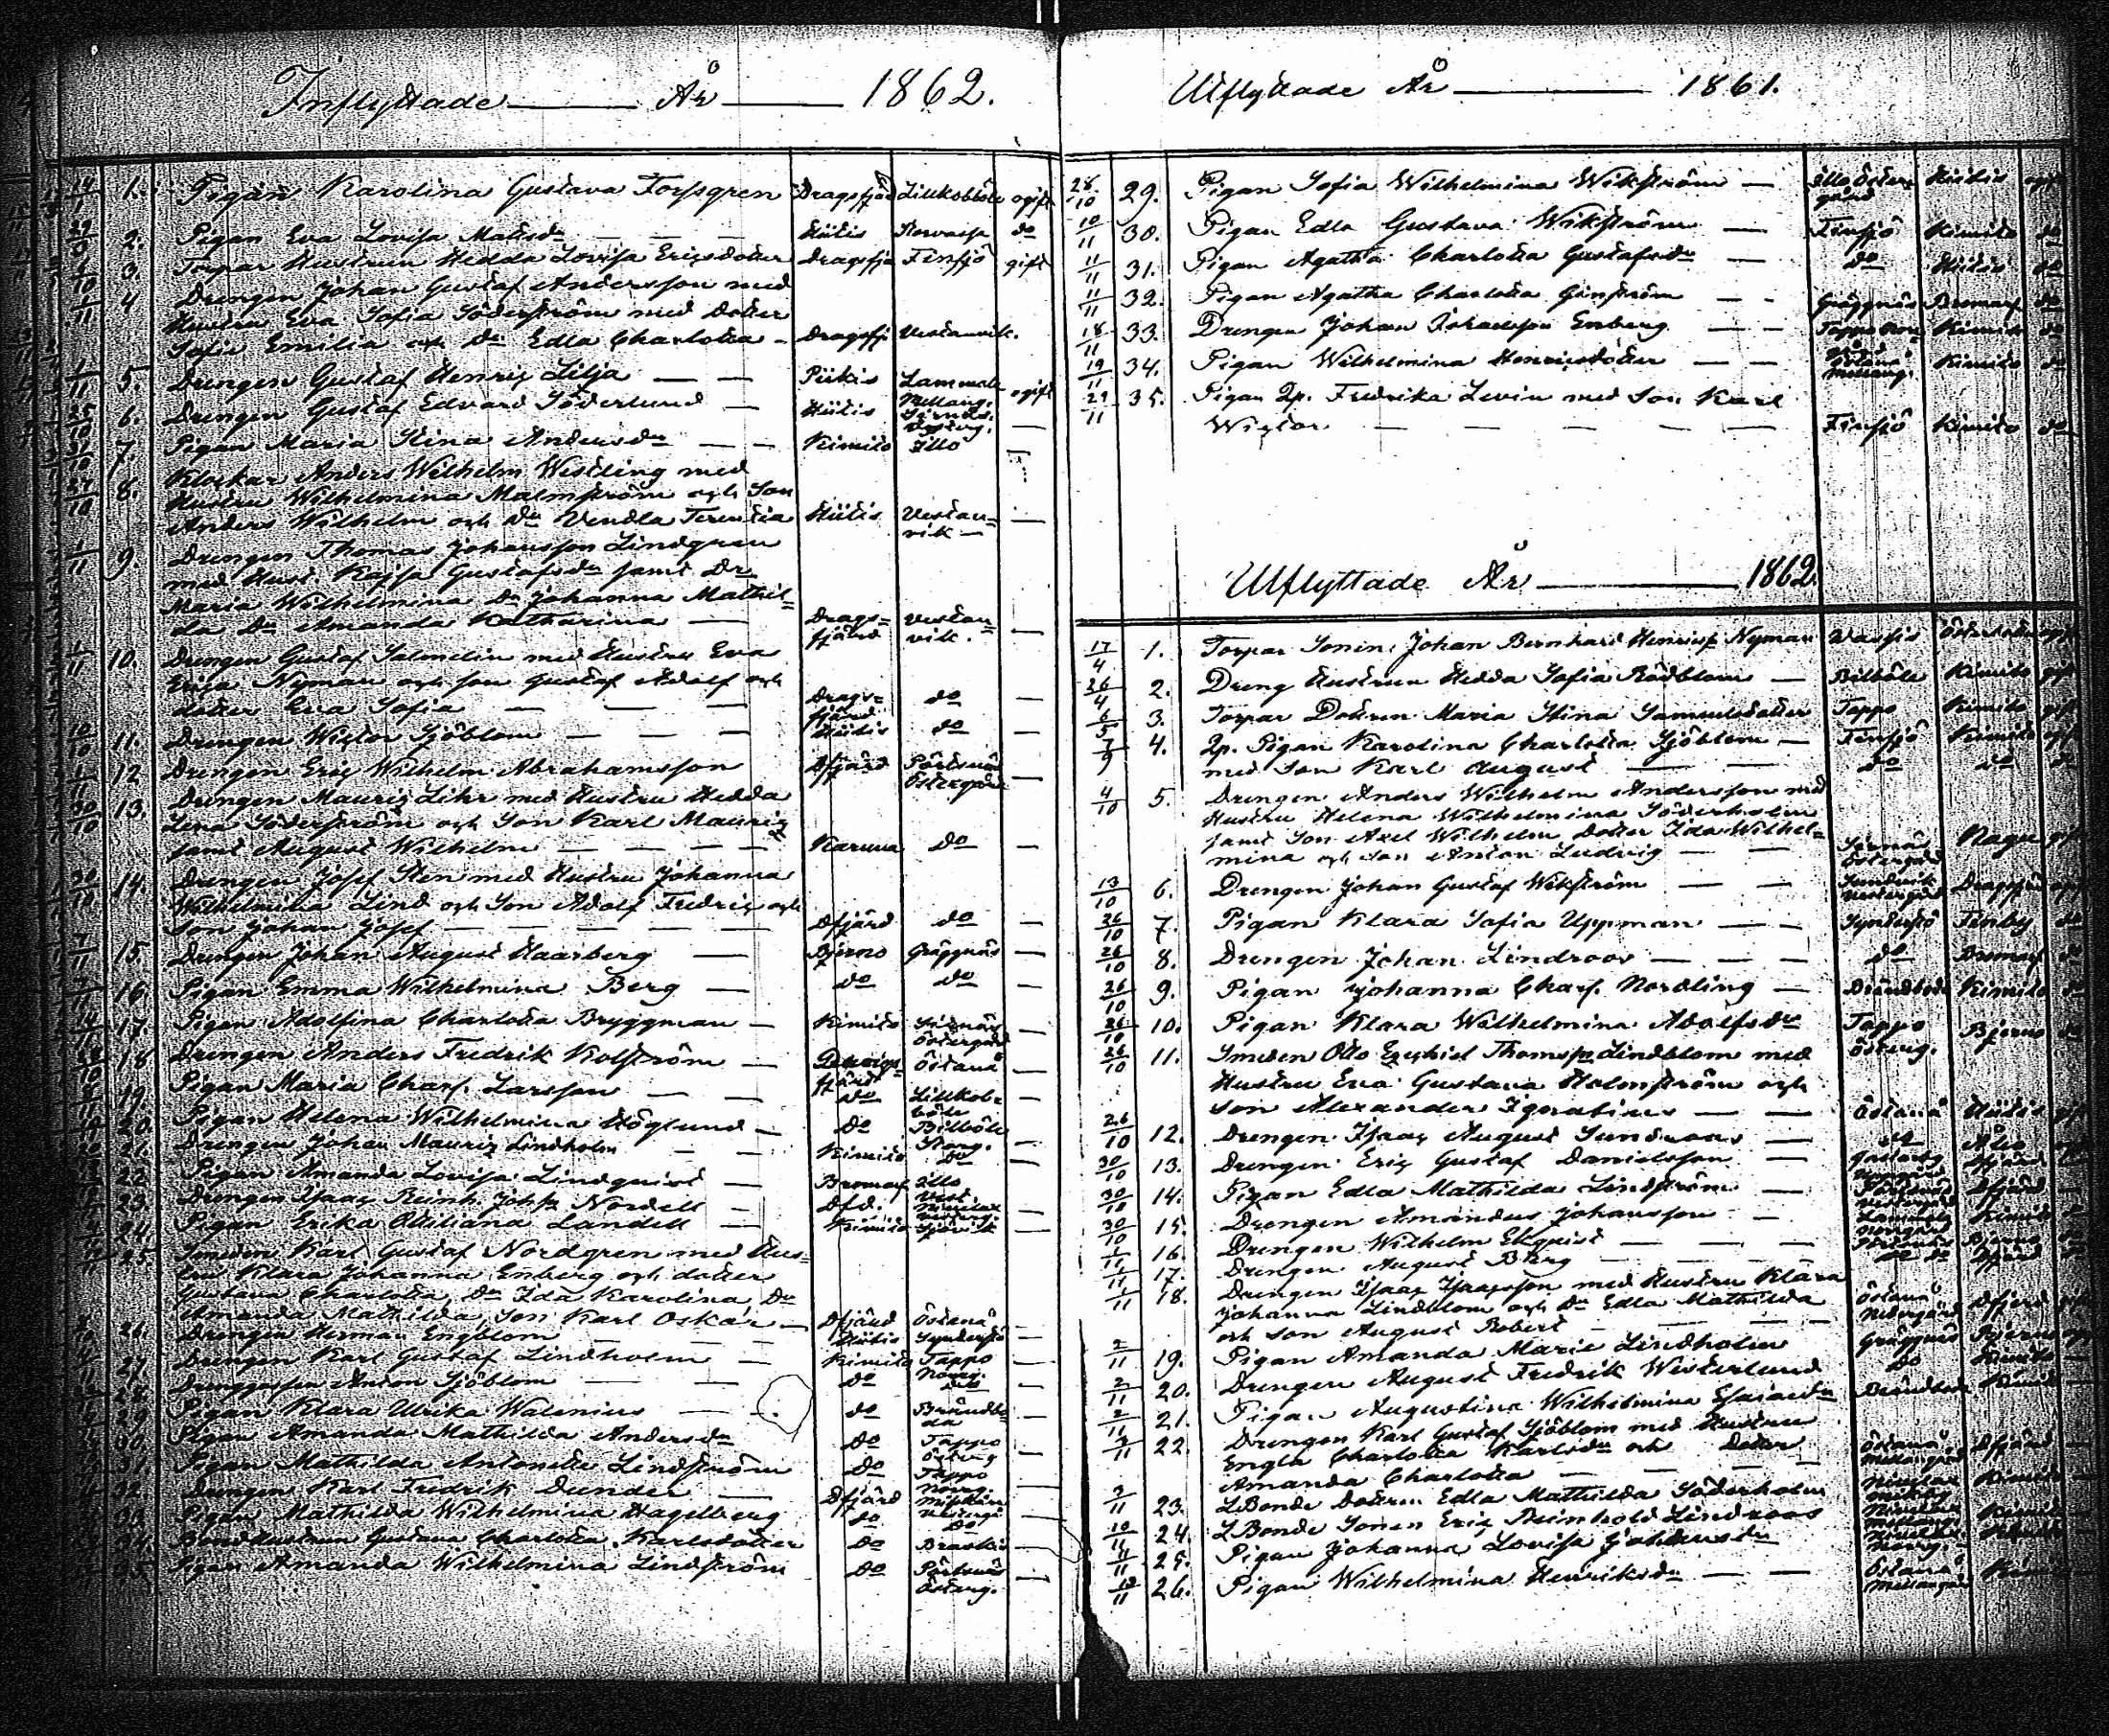 Inflyttade — År — 1862.
14/1 1. Pigan Karolina Gustava Forssgren Dragsfjärd Lillkobböle ogift
2. Pigan Eva Lovisa Matsdr — Hiitis Rosvassa do
3. Torpar Hustrun Hedda Lovisa Ericsdotter Dragsfj Finsjö gift
1/11 4 Drengen Johan Gustaf Andersson med
Hustru Eva Sofia Söderström med Dotter
Sofia Emilia och Dr Edla Charlotta — Dragsfj Vestanvik.
1/11 5. Drengen Gustaf Henriq Lilja — Piikis Lammala Mellang. ogift
25/10 6. Drengen Gustaf Edvard Söderlund — Hiitis Sirnäs Österg. —
7. Pigan Maria Stina Andersdr — Kimito Illo —
27/10 8. Klockar Anders Wilhelm Westling med
Hustru Wilhelmina Malmström och Son
Anders Wilhelm och Dr Vendla Terentia Hiitis Vestan=
vik —
1/11 9. Drengen Thomas Johansson Lindgren
med Hust. Kajsa Gustafsdr samt Dr
Maria Wilhelmina Dr Johanna Mathil=
da Dr Amanda Katharina — Drags=
fjärd Vestan=
vik. —
1/11 10. Drengen Gustaf Salmelin med Hustru Eva
Erica Nyman och son Gustaf Adolf och
dotter Eva Sofia — Drags=
fjärd do —
10/10 11. Drengen Wictor Sjöblom — Hiitis do —
1/11 12 Drengen Eriq Wilhelm Abrahamsson Dfjärd Pörtsnäs Östergård —
30/10 13. Drengen Mauriq Lihr med Hustru Hedda
Lena Söderström och Son Karl Mauriq
samt August Wilhelm — Karuna do —
30/10 14. Drengen Josef Sten med Hustru Johanna
Wilhelmina Lind och Son Adolf Fredriq och
Son Johan Josef — Dfjärd do —
7/11 15. Drengen Johan August Haarberg — Bjerno Gräggnäs —
16. Pigan Emma Wilhelmina Berg — do do —
17. Pigan Adolfina Charlotta Bryggman — Kimito Sirnäs Östergård —
18 Drengen Anders Fredrik Kolström — Dragsfjärd Östanå —
19. Pigan Maria Chars. Larsson — do Lillkobböle —
20. Pigan Helena Wilhelmina Höglund — do Bilböle
21. Drengen Johan Mauriq Lindholm — Kimito do —
22. Pigan Amanda Lovisa Lindqvist — Bromarf Illo
23. Drengen Isaaq Reinh. Johss Nordell — Dfd.
24. Pigan Erika Ottiliana Landell — Kimito
25 Smeden Karl Gustaf Nordgren med Hus=
tru Klara Johanna Enberg och dotter
Gustava Charlotta, Dr Ida Karolina, Dr
Amanda Mathilda, Son Karl Oskar — Dfjärd Östanå —
26. Drengen Herman Engblom — Hiitis Synderstö —
27. Drengen Karl Gustaf Lindholm — Kimito Tappo Norrg. —
28. Drenggossen Anton Sjöblom — do —
29. Pigan Klara Ulrika Walenius — do Brändbo=
da —
30. Pigan Amanda Mathilda Andersdr do Tappo Österg
31. Pigan Mathilda Antonetta Lindström do Tappo Norrg
32. Drengen Karl Fredrik Dunder — Dfjärd
33. Pigan Mathilda Wilhelmina Hagelberg do do
34. Bondhustrun Gustava Charlotta Karlsdotter do —
35 Pigan Amanda Wilhelmina Lindström do Pörtsnäs Österg. —
Utflyttade År — 1861.
28/10 29. Pigan Sofia Wilhelmina Wikström — Illo Öster
gård Hiitis ogift
10/11 30. Pigan Edla Gustava Wikström — Finsjö Kimito do
11/11 31. Pigan Agatha Charlotta Gustafsdr — do Hiitis do
11/11 32. Pigan Agatha Charlotta Ginström — Gräggnäs Bromarf do
18/11 33. Drengen Johan Johansson Enberg — Tappo Kimito do
19/11 34. Pigan Wilhelmina Henricsdotter — Östanå Mellang. Kimito do
29/11 35. Pigan Qp. Fredrika Levin med Son Karl
Wictor — Finsjö Kimito do
Utflyttade År — 1862
17/4 1. Torpar Sonen Johan Bernhard Henricss Nyman
26/4 2. Dreng Hustrun Hedda Sofia Rödblom — Bilböle Kimito gift
6/5 3. Torpar Dottren Maria Stina Samuelsdotter Tappo Kimito
7/9 4. Qp. Pigan Karolina Charlotta Sjöblom — Finsjö Kimito
med Son Karl August — do do do
4/10 5. Drengen Anders Wilhelm Andersson med
Hustru Helena Wilhelmina Söderholm
samt Son Axel Wilhelm Dotter Ida Wilhel=
mina och Son Anton Ludvig — Sirnäs Östergård Nagu
13/10 6. Drengen Johan Gustaf Wikström —
26/10 7. Pigan Klara Sofia Uppman — Synderstö Tenby do
26/10 8. Drengen Johan Lindroos — do Bromarf do
26/10 9. Pigan Johanna Chars. Nordling — Brändboda Kimito do
26/10 10. Pigan Klara Wilhelmina Adolfsdr Tappo
Österg. Bjerno
26/10 11. Smeden Otto Ezechiel Thomss Lindblom med
Hustru Eva Gustava Holmström och
Son Alexander Ignatius — Östanå Hiitis
26/10 12. Drengen Isaaq August Sundroos — Åbo
30/10 13. Drengen Eriq Gustaf Danielsson — Dfjärd
30/10 14. Pigan Edla Mathilda Lindström — Dfjärd
30/10 15. Drengen Amandus Johansson — Kimito
1/11 16. Drengen Wilhelm Ekqvist — Bjerno
1/11 17. Drengen August Berg — do Dfjärd
1/11 18. Drengen Isaaq Isaacsson med Hustru Klara
Johanna Lindblom och Dr Edla Mathilda
och Son August Robert — Östanå Nedergård Dfjerd
2/11 19. Pigan Amanda Marie Lindholm Gräggnäs Bjerno
2/11 20. Drengen August Fredrik Westerlund do Kimito
2/11 21. Pigan Augustina Wilhelmina Esaiasdr Brändboda Kimito
2/11 22. Drengen Karl Gustaf Sjöblom med Hustru
Engla Charlotta Karlsdr och Dotter
Amanda Charlotta — Östanå Mellangård Dfjärd
2/11 23. LBonde Dottren Edla Mathilda Söderholm Kimito
24. LBonde Sonen Eriq Reinhold Lindroos Kimito
25. Pigan Johanna Lovisa Johansdr
26. Pigan Wilhelmina Henriksdr — Östanå Mellangård Kimito